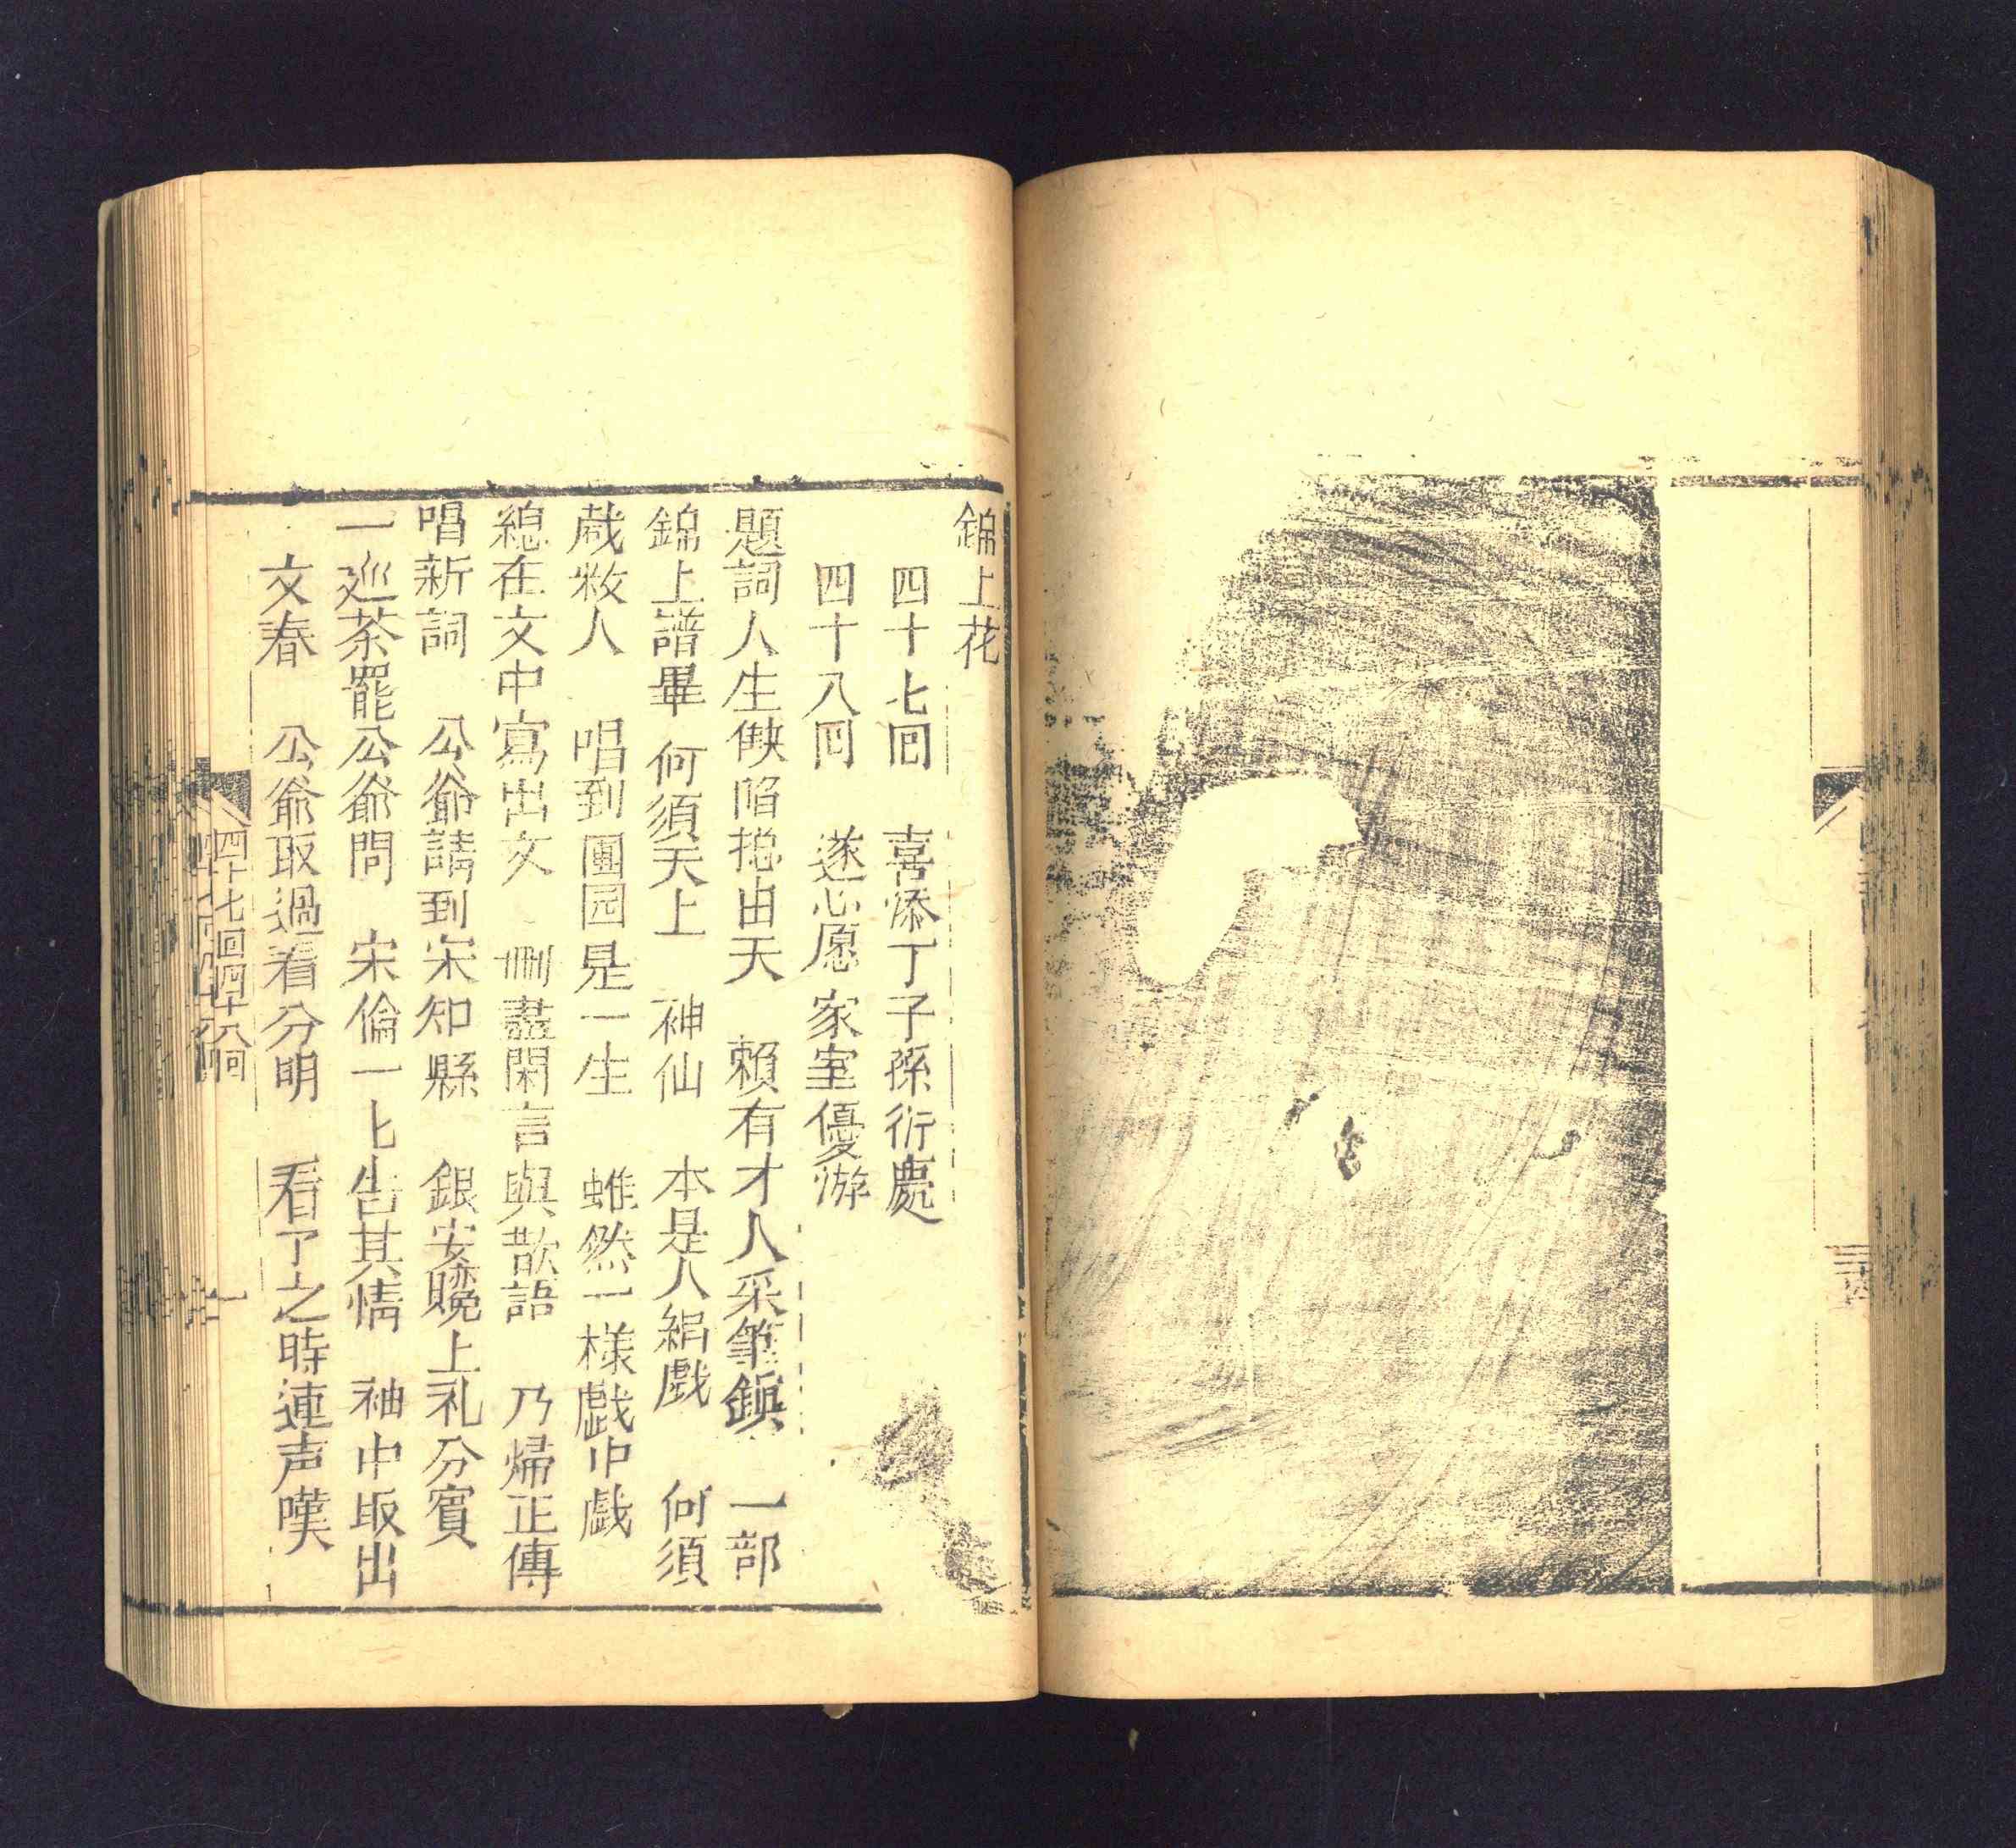 錦上花
四十七回 喜添丁子孫衍慶
四十八回 遂心愿家室優游
題詞人生缺陷摠由天 賴有才人采筆鎮 一部
錦上譜畢 何須天上 神仙 本是人絹戯 何須
戯敉人 唱到團园是一生 虽然一樣戯中戯
總在文中寫出文 刪盡閑言與散語 乃歸正傳
唱新詞 公爺請到宋知縣 銀安賤上礼分賓
一廵茶罷公爺問 宋倫一匕告其情 袖中取出
文春 公爺取過看分明 看了之時連声嘆
四十七回四十八回
一